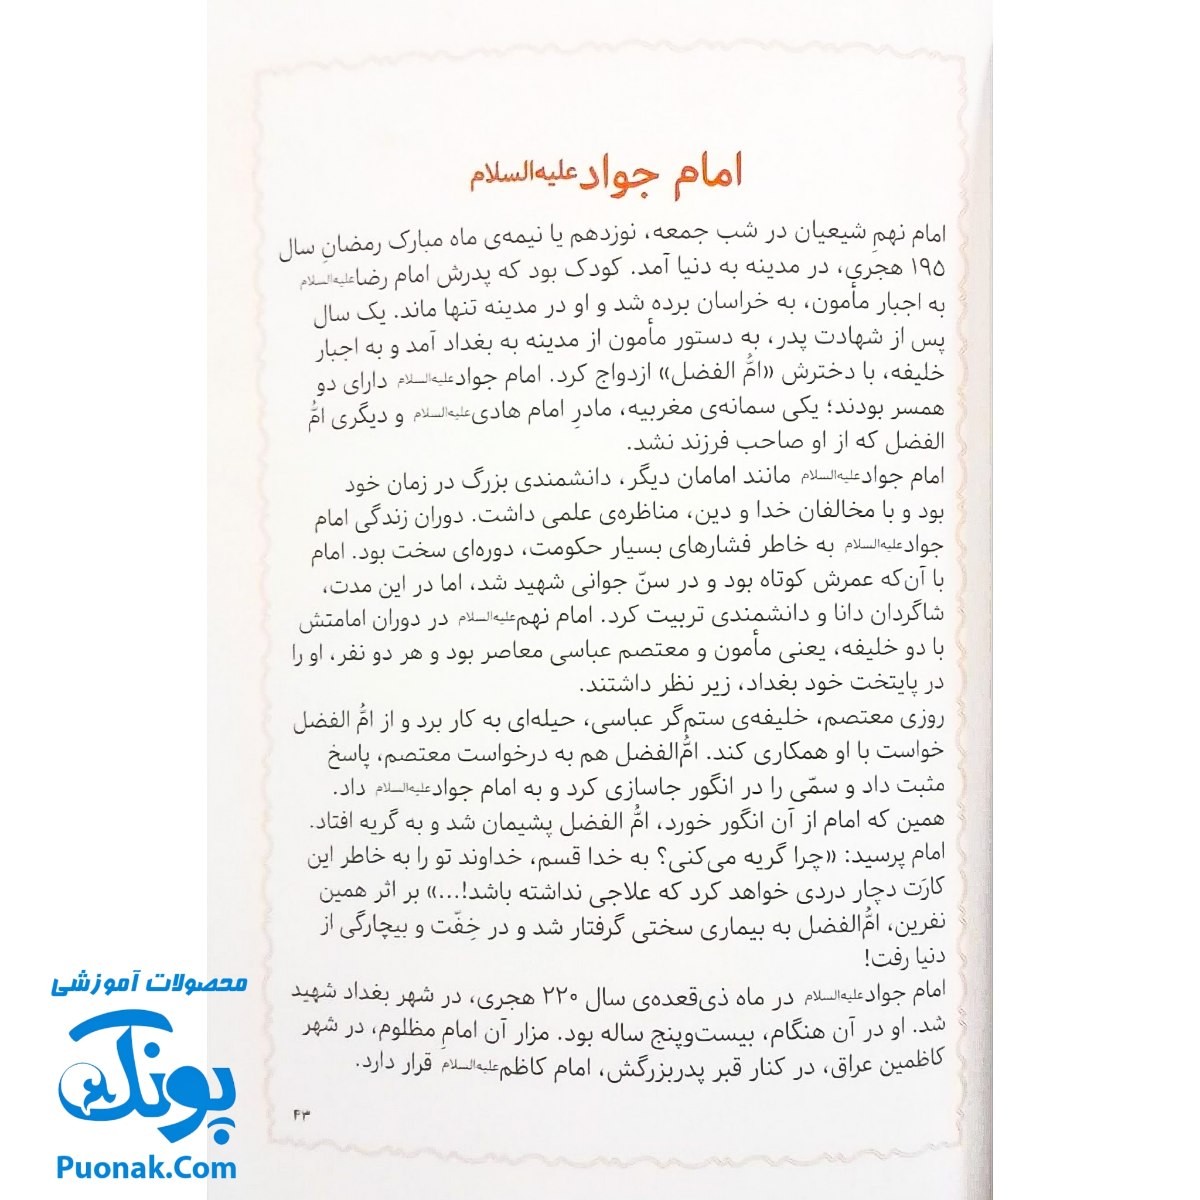 امام جواد علیه‌السلام
امام نهمِ شیعیان در شب جمعه، نوزدهم یا نیمه‌ی ماه مبارک رمضانِ سال
۱۹۵ هجری، در مدینه به دنیا آمد. کودک بود که پدرش امام رضا علیه‌السلام
به اجبار مأمون، به خراسان برده شد و او در مدینه تنها ماند. یک سال
پس از شهادت پدر، به دستور مأمون از مدینه به بغداد آمد و به اجبار
خلیفه، با دخترش «امُّ الفضل» ازدواج کرد. امام جواد علیه‌السلام دارای دو
همسر بودند؛ یکی سمانه‌ی مغربیه، مادرِ امام هادی علیه‌السلام و دیگری امُّ
الفضل که از او صاحب فرزند نشد.
امام جواد علیه‌السلام مانند امامان دیگر، دانشمندی بزرگ در زمان خود
بود و با مخالفان خدا و دین، مناظره‌ی علمی داشت. دوران زندگی امام
جواد علیه‌السلام به خاطر فشارهای بسیار حکومت، دوره‌ای سخت بود. امام
با آن‌که عمرش کوتاه بود و در سنّ جوانی شهید شد، اما در این مدت،
شاگردان دانا و دانشمندی تربیت کرد. امام نهم علیه‌السلام در دوران امامتش
با دو خلیفه، یعنی مأمون و معتصم عباسی معاصر بود و هر دو نفر، او را
در پایتخت خود بغداد، زیر نظر داشتند.
روزی معتصم، خلیفه‌ی ستم‌گر عباسی، حیله‌ای به کار برد و از امُّ الفضل
خواست با او همکاری کند. امُّ‌الفضل هم به درخواست معتصم، پاسخ
مثبت داد و سمّی را در انگور جاسازی کرد و به امام جواد علیه‌السلام داد.
همین که امام از آن انگور خورد، امُّ الفضل پشیمان شد و به گریه افتاد.
امام پرسید: «چرا گریه می‌کنی؟ به خدا قسم، خداوند تو را به خاطر این
کارَت دچار دردی خواهد کرد که علاجی نداشته باشد!...» بر اثر همین
نفرین، امُّ‌الفضل به بیماری سختی گرفتار شد و در خِفّت و بیچارگی از
دنیا رفت!
امام جواد علیه‌السلام در ماه ذی‌قعده‌ی سال ۲۲۰ هجری، در شهر بغداد شهید
شد. او در آن هنگام، بیست‌وپنج ساله بود. مزار آن امامِ مظلوم، در شهر
کاظمین عراق، در کنار قبر پدربزرگش، امام کاظم علیه‌السلام قرار دارد.
۴۳
محصولات آموزشی
پونک
Puonak.Com